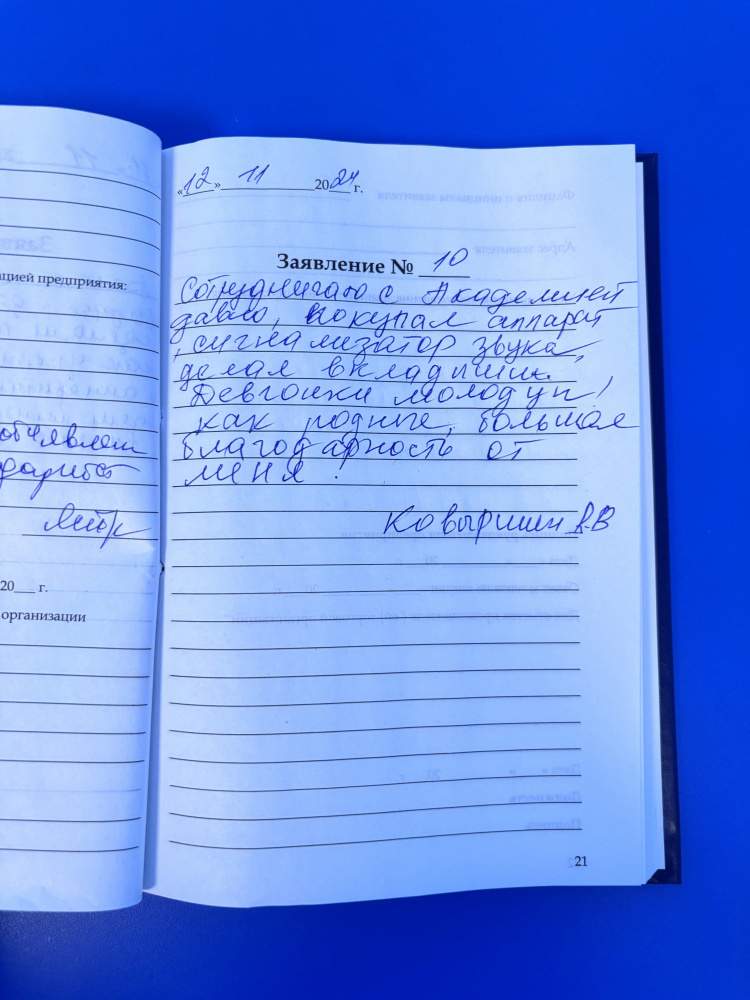 ацией предприятия:
20___ г.
организации
«12» 11 2024 г.
Заявление № 10
Сотрудничаю с Академией
давно, покупал аппарат
, сигнализатор звука,
делал вкладыши.
Девчонки молодцы,
как родные, большая
благодарность от
меня.
21